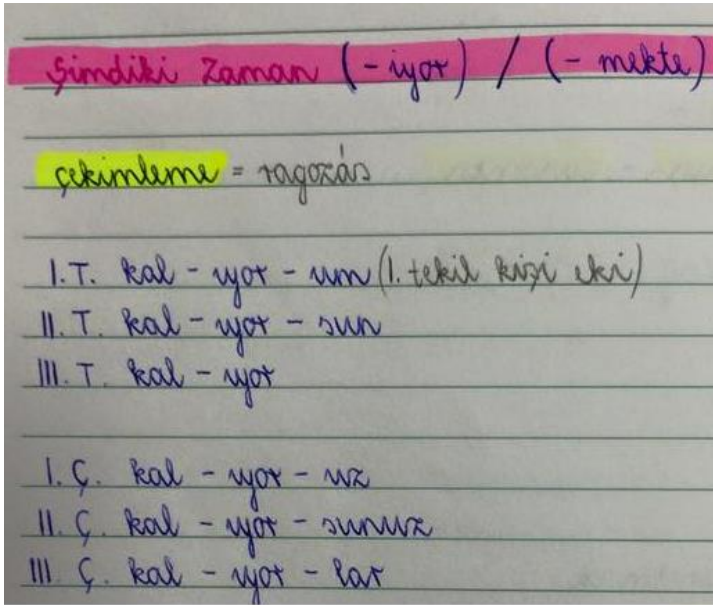 Şimdiki Zaman (-iyor) / (- mekte)
çekimleme = ragozás
I.T. kal - ıyor - um (1. tekil kişi eki)
II.T. kal - ıyor - sun
III.T. kal - ıyor
I.Ç. kal - ıyor - uz
II.Ç. kal - ıyor - sunuz
III.Ç. kal - ıyor - lar